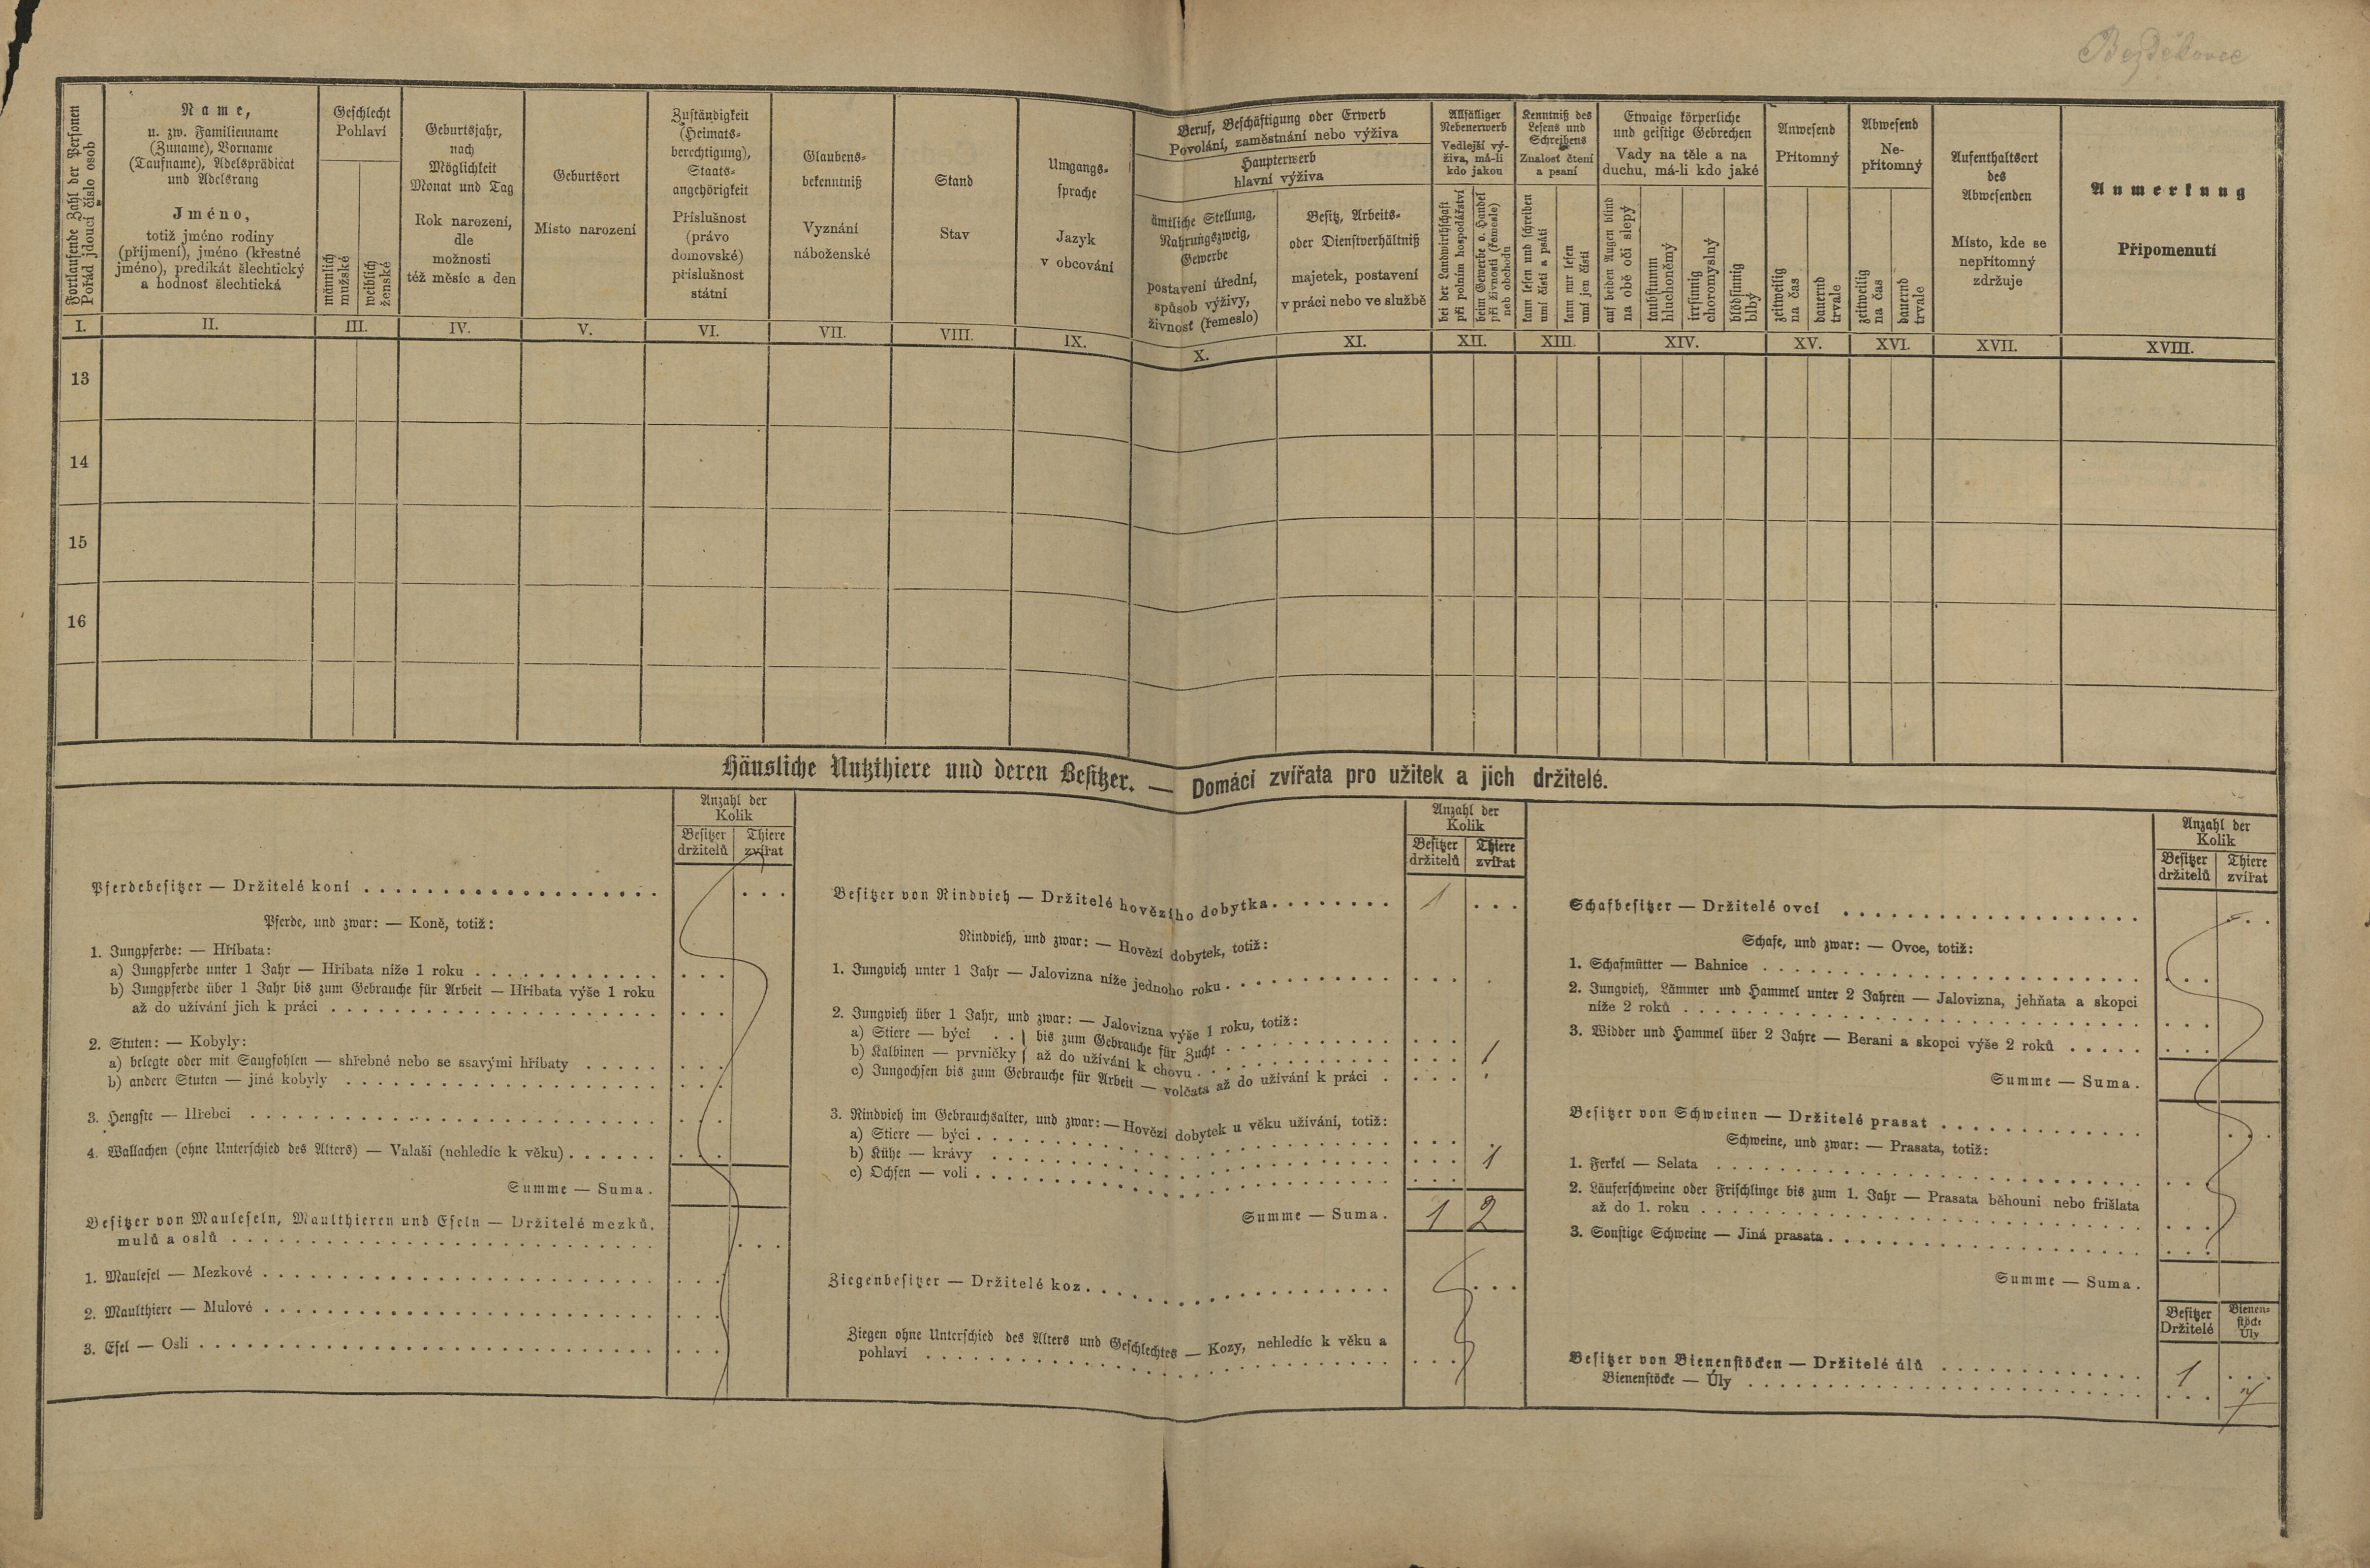 Bezděkovce
Fortlaufende Zahl der Personen
Pořád jdoucí číslo osob
I.
Name,
u. zw. Familienname
(Zuname), Vorname
(Taufname), Adelsprädicat
und Adelsrang
Jméno,
totiž jméno rodiny
(příjmení), jméno (křestné
jméno), predikát šlechtický
a hodnosť šlechtická
II.
Geschlecht
Pohlaví
männlich
mužské
weiblich
ženské
III.
Geburtsjahr,
nach
Möglichkeit
Monat und Tag
Rok narození,
dle
možnosti
též měsíc a den
IV.
Geburtsort
Místo narození
V.
Zuständigkeit
(Heimats-
berechtigung),
Staats-
angehörigkeit
Příslušnost
(právo
domovské)
příslušnost
státní
VI.
Glaubens-
bekenntniß
Vyznání
náboženské
VII.
Stand
Stav
VIII.
Umgangs-
sprache
Jazyk
v obcování
IX.
Beruf, Beschäftigung oder Erwerb
Povolání, zaměstnání nebo výživa
Haupterwerb
hlavní výživa
ämtliche Stellung,
Nahrungszweig,
Gewerbe
postavení úřední,
spůsob výživy,
živnosť (řemeslo)
X.
Besitz, Arbeits-
oder Dienstverhältniß
majetek, postavení
v práci nebo ve službě
XI.
Allfälliger
Nebenerwerb
Vedlejší vý-
živa, má-li
kdo jakou
bei der Landwirthschaft
při polním hospodářství
beim Gewerbe o. Handel
při živnosti (řemesle)
neb obchodu
XII.
Kenntniß des
Lesens und
Schreibens
Znalosť čtení
a psaní
kann lesen und schreiben
umí čísti a psáti
kann nur lesen
umí jen čísti
XIII.
Etwaige körperliche
und geistige Gebrechen
Vady na těle a na
duchu, má-li kdo jaké
auf beiden Augen blind
na obě oči slepý
taubstumm
hluchoněmý
irrsinnig
choromyslný
blödsinnig
blbý
XIV.
Anwesend
Přítomný
zeitweilig
na čas
dauernd
trvale
XV.
Abwesend
Ne-
přítomný
zeitweilig
na čas
dauernd
trvale
XVI.
Aufenthaltsort
des
Abwesenden
Místo, kde se
nepřítomný
zdržuje
XVII.
Anmerkung
Připomenutí
XVIII.
13
14
15
16
Häusliche Nutzthiere und deren Besitzer. — Domácí zvířata pro užitek a jich držitelé.
Anzahl der
Kolik
Besitzer Thiere
držitelů zvířat
Pferdebesitzer — Držitelé koní
Pferde, und zwar: — Koně, totiž:
1. Jungpferde: — Hříbata:
a) Jungpferde unter 1 Jahr — Hříbata níže 1 roku
b) Jungpferde über 1 Jahr bis zum Gebrauche für Arbeit — Hříbata výše 1 roku
až do užívání jich k práci
2. Stuten: — Kobyly:
a) belegte oder mit Saugfohlen — shřebné nebo se ssavými hříbaty
b) andere Stuten — jiné kobyly
3. Hengste — Hřebci
4. Wallachen (ohne Unterschied des Alters) — Valaši (nehledíc k věku)
Summe — Suma.
Besitzer von Mauleseln, Maulthieren und Eseln — Držitelé mezků,
mulů a oslů
1. Maulesel — Mezkové
2. Maulthiere — Mulové
3. Esel — Osli
Anzahl der
Kolik
Besitzer Thiere
držitelů zvířat
Besitzer von Rindvieh — Držitelé hovězího dobytka 1
Rindvieh, und zwar: — Hovězí dobytek, totiž:
1. Jungvieh unter 1 Jahr — Jalovizna níže jednoho roku
2. Jungvieh über 1 Jahr, und zwar: — Jalovizna výše 1 roku, totiž:
a) Stiere — býci . . } bis zum Gebrauche für Zucht
b) Kalbinen — prvničky } až do užívání k chovu 1
c) Jungochsen bis zum Gebrauche für Arbeit — volčata až do užívání k práci
3. Rindvieh im Gebrauchsalter, und zwar: — Hovězí dobytek u věku užívání, totiž:
a) Stiere — býci
b) Kühe — krávy 1
c) Ochsen — voli
Summe — Suma. 1 2
Ziegenbesitzer — Držitelé koz
Ziegen ohne Unterschied des Alters und Geschlechtes — Kozy, nehledíc k věku a
pohlaví
Anzahl der
Kolik
Besitzer Thiere
držitelů zvířat
Schafbesitzer — Držitelé ovcí
Schafe, und zwar: — Ovce, totiž:
1. Schafmütter — Bahnice
2. Jungvieh, Lämmer und Hammel unter 2 Jahren — Jalovizna, jehňata a skopci
níže 2 roků
3. Widder und Hammel über 2 Jahre — Berani a skopci výše 2 roků
Summe — Suma.
Besitzer von Schweinen — Držitelé prasat
Schweine, und zwar: — Prasata, totiž:
1. Ferkel — Selata
2. Läuferschweine oder Frischlinge bis zum 1. Jahr — Prasata běhouni nebo frišlata
až do 1. roku
3. Sonstige Schweine — Jiná prasata
Summe — Suma.
Besitzer Bienen-
Držitelé stöcke
Úly
Besitzer von Bienenstöcken — Držitelé úlů 1
Bienenstöcke — Úly 7